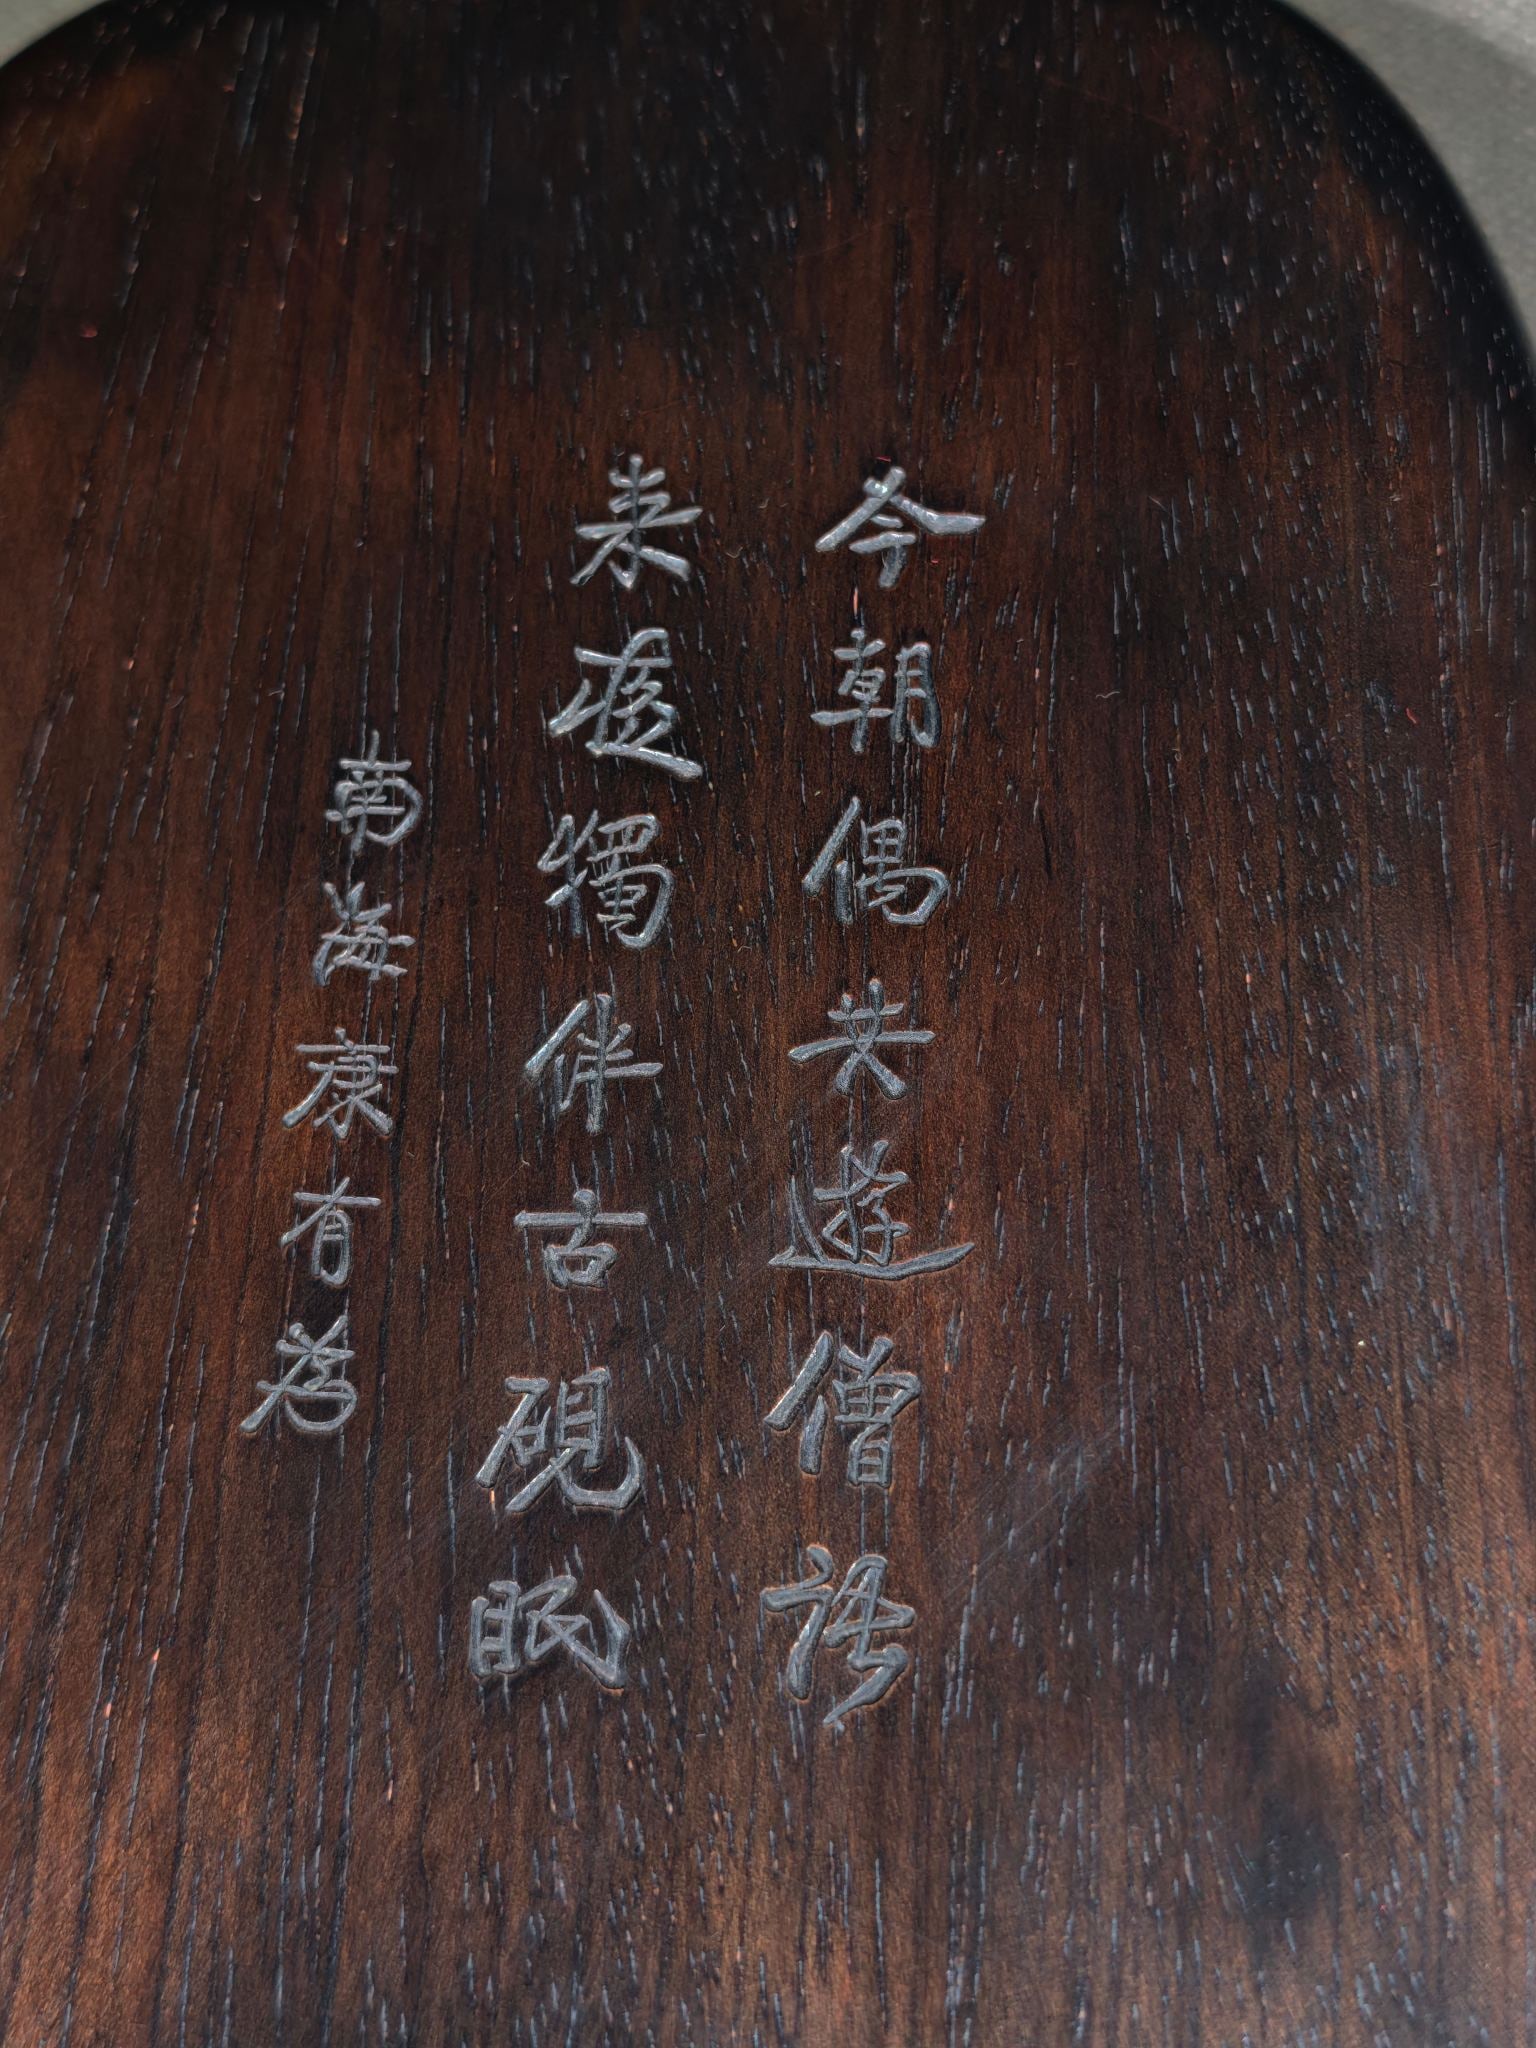 今朝偶共遊僧語
来夜獨伴古硯眠
南海康有為